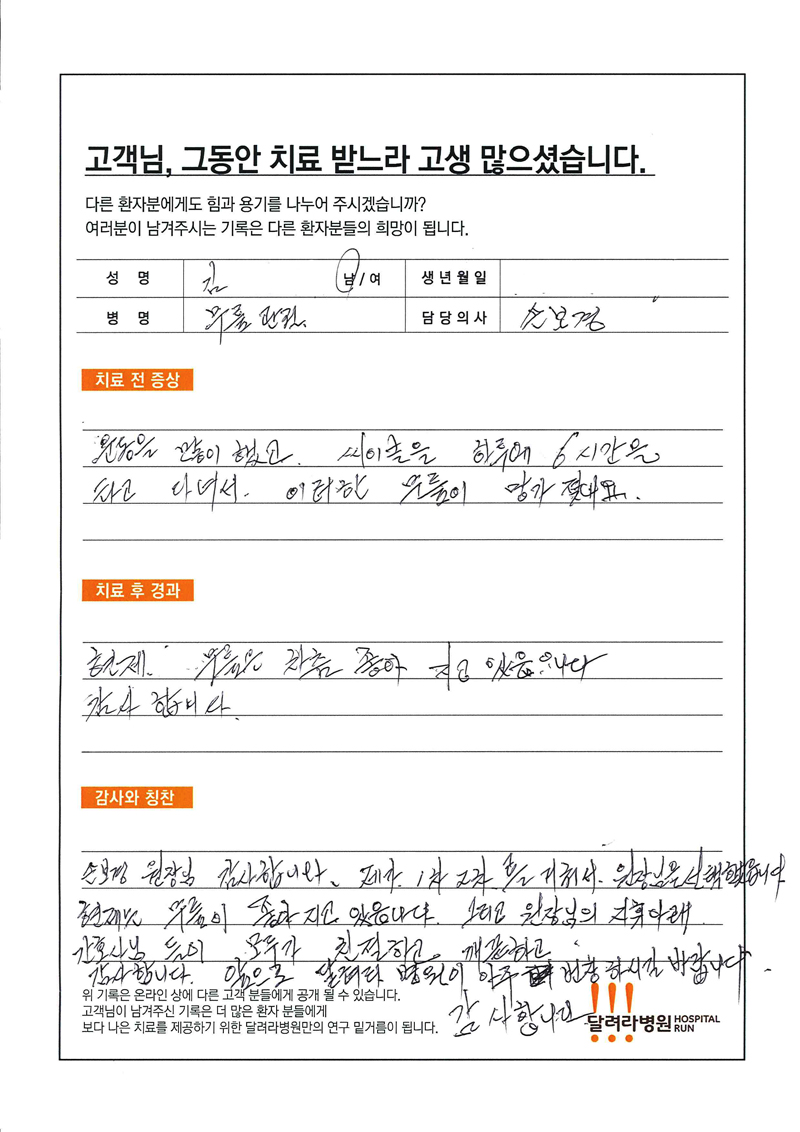 고객님, 그동안 치료 받느라 고생 많으셨습니다.
다른 환자분에게도 힘과 용기를 나누어 주시겠습니까?
여러분이 남겨주시는 기록은 다른 환자분들의 희망이 됩니다.
성 명 김 남/여 생년월일
병 명 무릎 관절. 담당의사 손보경
치료 전 증상
운동을 많이 했고. 싸이클을 하루에 6시간을
타고 다녀서. 이러한 무릎이 망가
치료 후 경과
현제. 무릎은 차츰 좋아 지고 있읍니다
감사 합니다.
감사와 칭찬
손보경 원장님 감사합니다. 제가 1차 2차 거쳐서. 원장님을 선택했읍니다
현제는 무릎이 좋아 지고 있읍니다. 그리고 원장님의 지휘아래
간호사님 들이 모두가 친절하고 깨끗하고
감사합니다. 앞으로 달려라 병원이 아주 번창 하시길 바랍니다.
감사합니다
위 기록은 온라인 상에 다른 고객 분들에게 공개 될 수 있습니다.
고객님이 남겨주신 기록은 더 많은 환자 분들에게
보다 나은 치료를 제공하기 위한 달려라병원만의 연구 밑거름이 됩니다.
달려라병원 HOSPITAL RUN